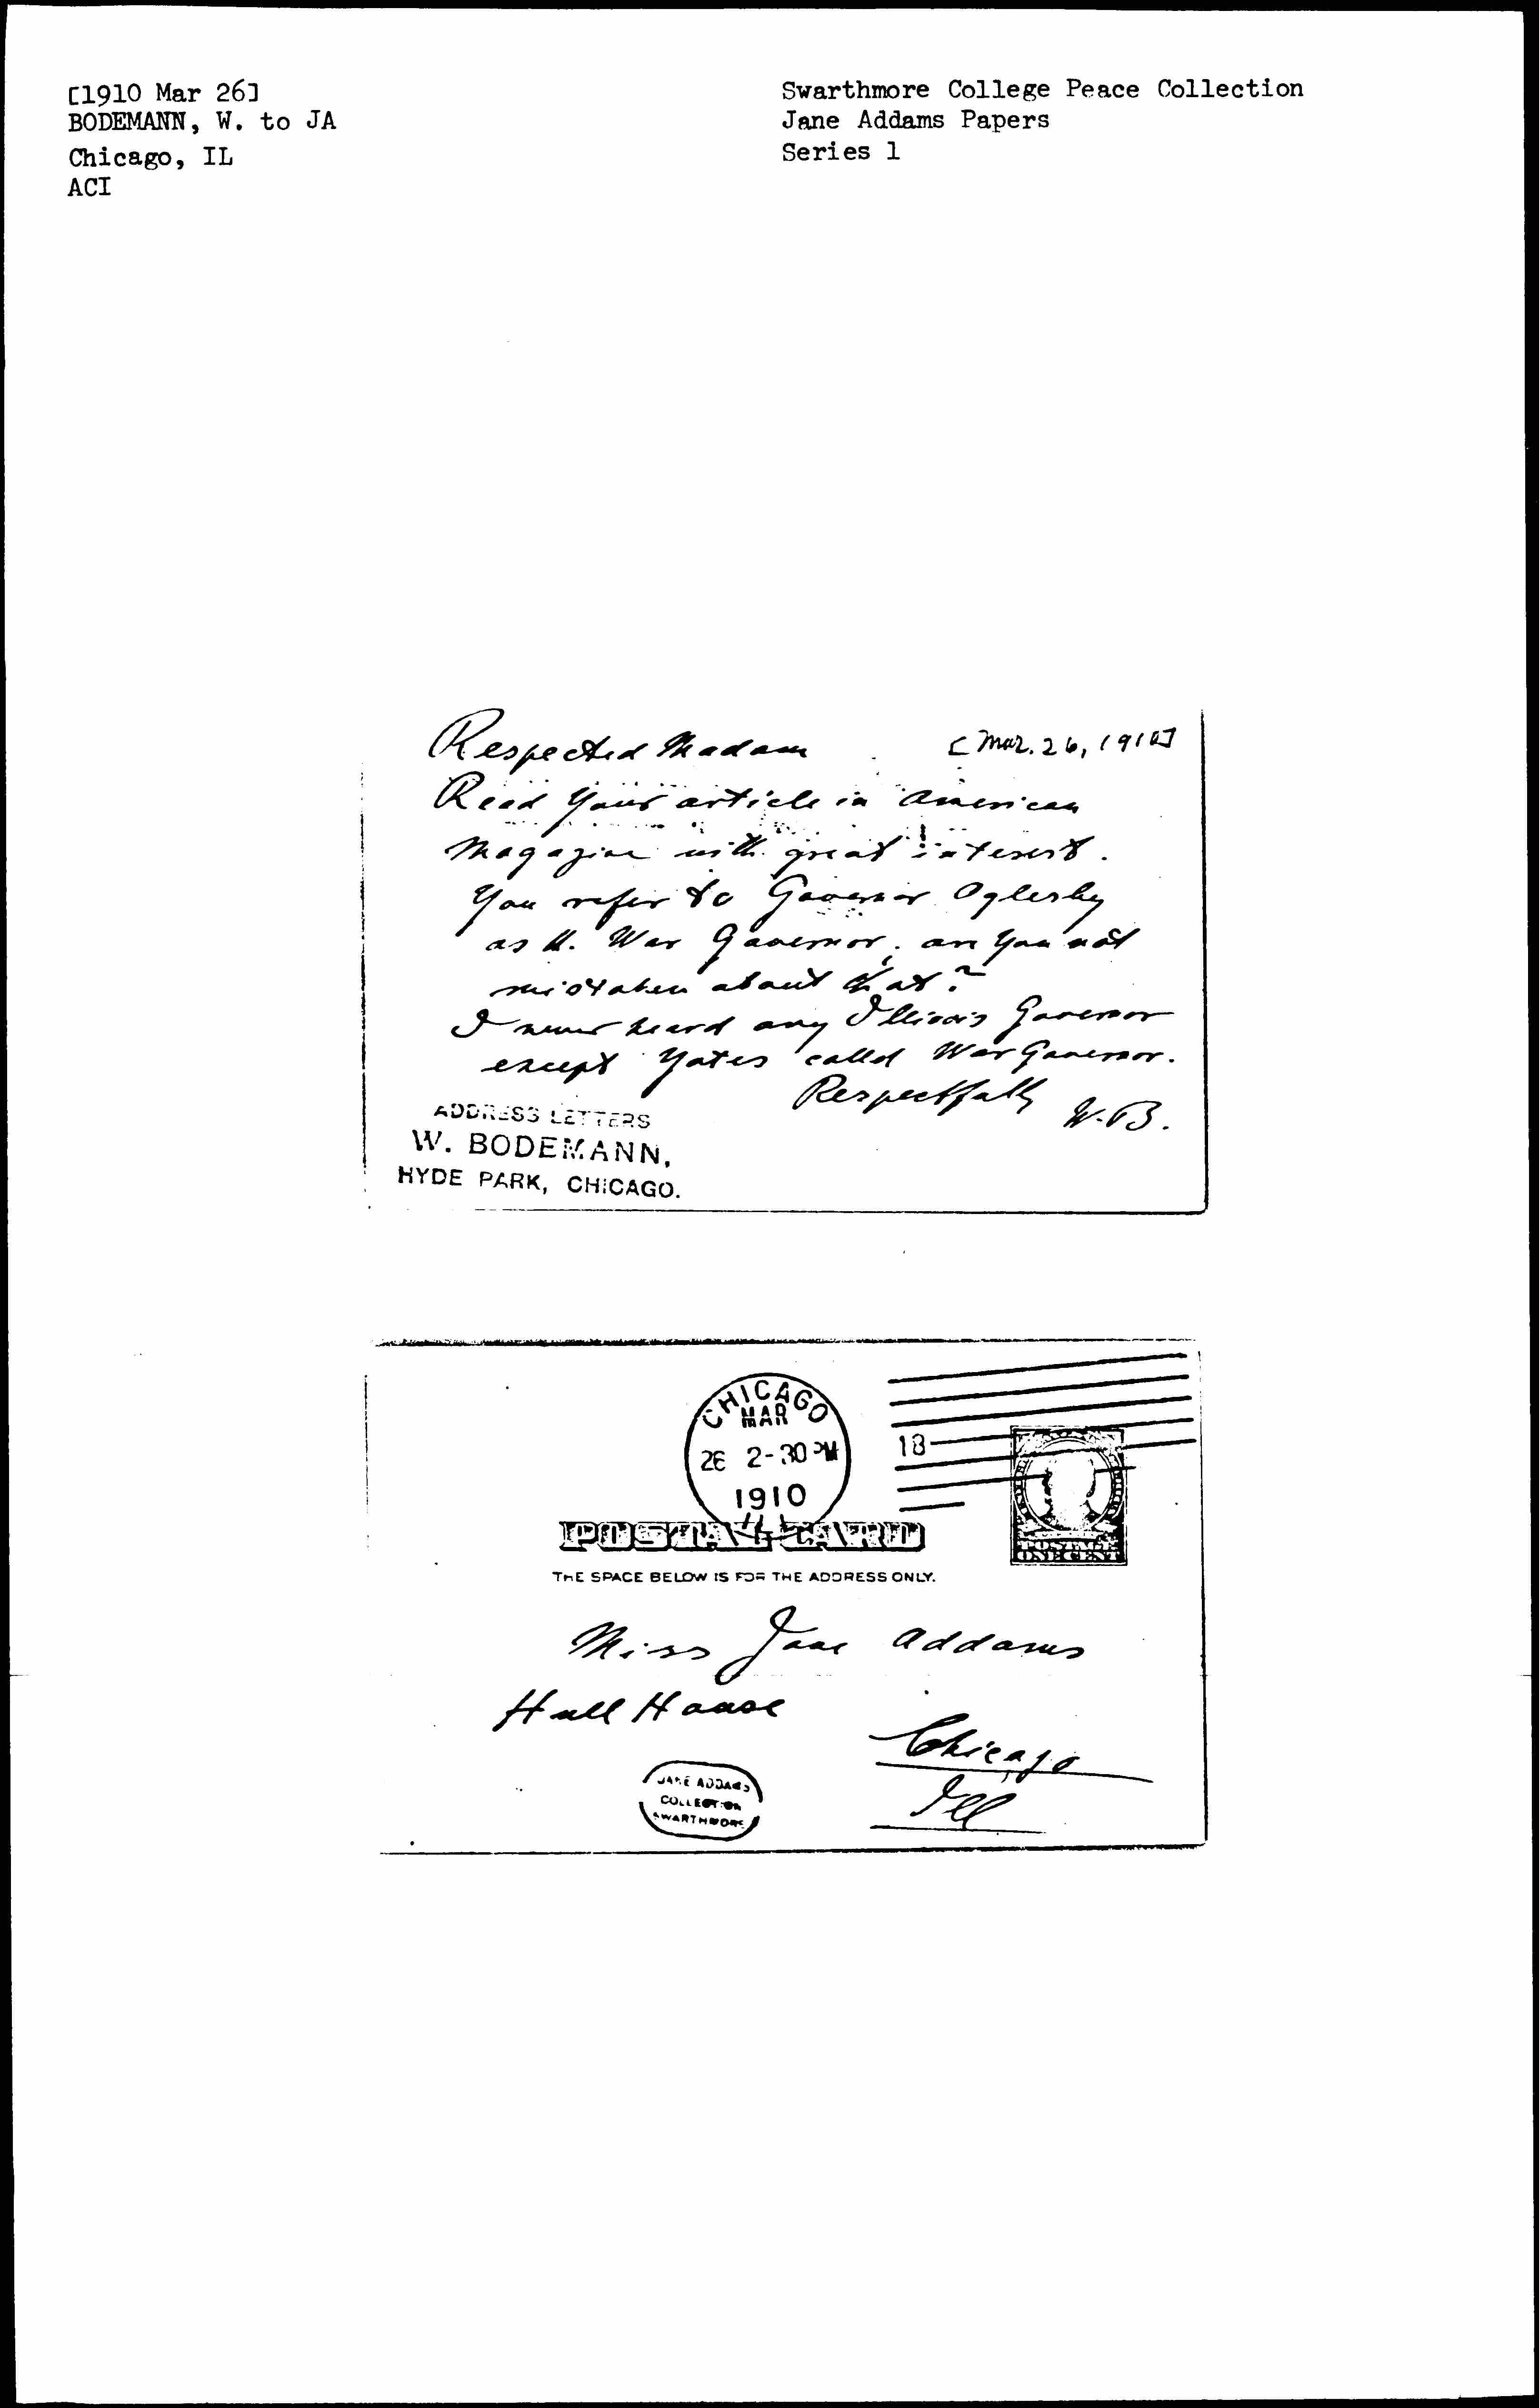 [1910 Mar 26]
BODEMANN, W. to JA
Chicago, IL
ACI
Swarthmore College Peace Collection
Jane Addams Papers
Series 1
Respected Madam
[Mar. 26, 1910]
Read your article in American
Magazine with great interest.
You refer to Governor Oglesby
as Ill. War Governor. are you not
mistaken about that?
I never heard any Illinois Governor
except Yates called War Governor.
Respectfully W.B.
ADDRESS LETTERS
W. BODEMANN,
HYDE PARK, CHICAGO.
CHICAGO
MAR
26 2-30 PM
1910
18
POSTAL CARD
POSTAGE
ONE CENT
THE SPACE BELOW IS FOR THE ADDRESS ONLY.
Miss Jane Addams
Hull House
Chicago
Ill
JANE ADDAMS
COLLECTION
SWARTHMORE